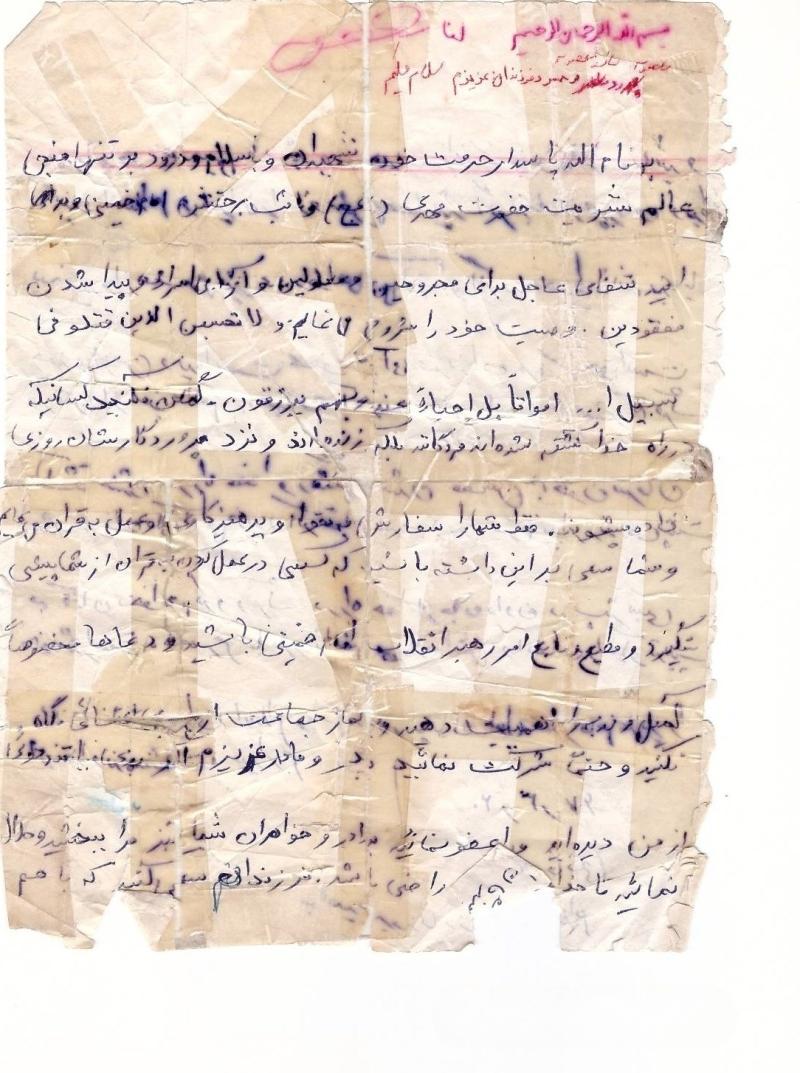 بسم الله الرحمن الرحیم
و همسر و فرزندان عزیزم سلام علیکم
بنام الله پاسدار حرمت خون شهیدان و با سلام و درود بر تنها منجی
عالم بشریت حضرت مهدی (عج) و نائب برحقش امام خمینی و برای
امید شفای عاجل برای مجروحین معلولین و آزادی اسراء و پیدا شدن
مفقودین . وصیت خود را شروع می نمایم و لا تحسبن الذین قتلو فی
سبیل ا... امواتاً بل احیاءً عند ربهم یرزقون . گمان نکنید کسانیکه
در راه خدا کشته شده اند مرده اند بلکه زنده اند و نزد پروردگارشان روزی
داده میشوند . فقط شما را سفارش به تقوا و پرهیزکاری و عمل به قرآن می نمایم
و شما سعی بر این داشته باشید که کسی در عمل کردن به قرآن از شما پیشی
نگیرد و مطیع و تابع امر رهبر انقلاب امام خمینی باشید و دعاها مخصوصاً
کمیل و ندبه را اهمیت دهید و نماز جماعت
نکنید و حتماً شرکت نمائید . پدر و مادر عزیزم اگر
از من دیده اید مرا عفو نمائید برادر و خواهران شما نیز مرا ببخشید و حلال
نمائید تا خدا راضی باشد . فرزندانم سعی کنید که با هم